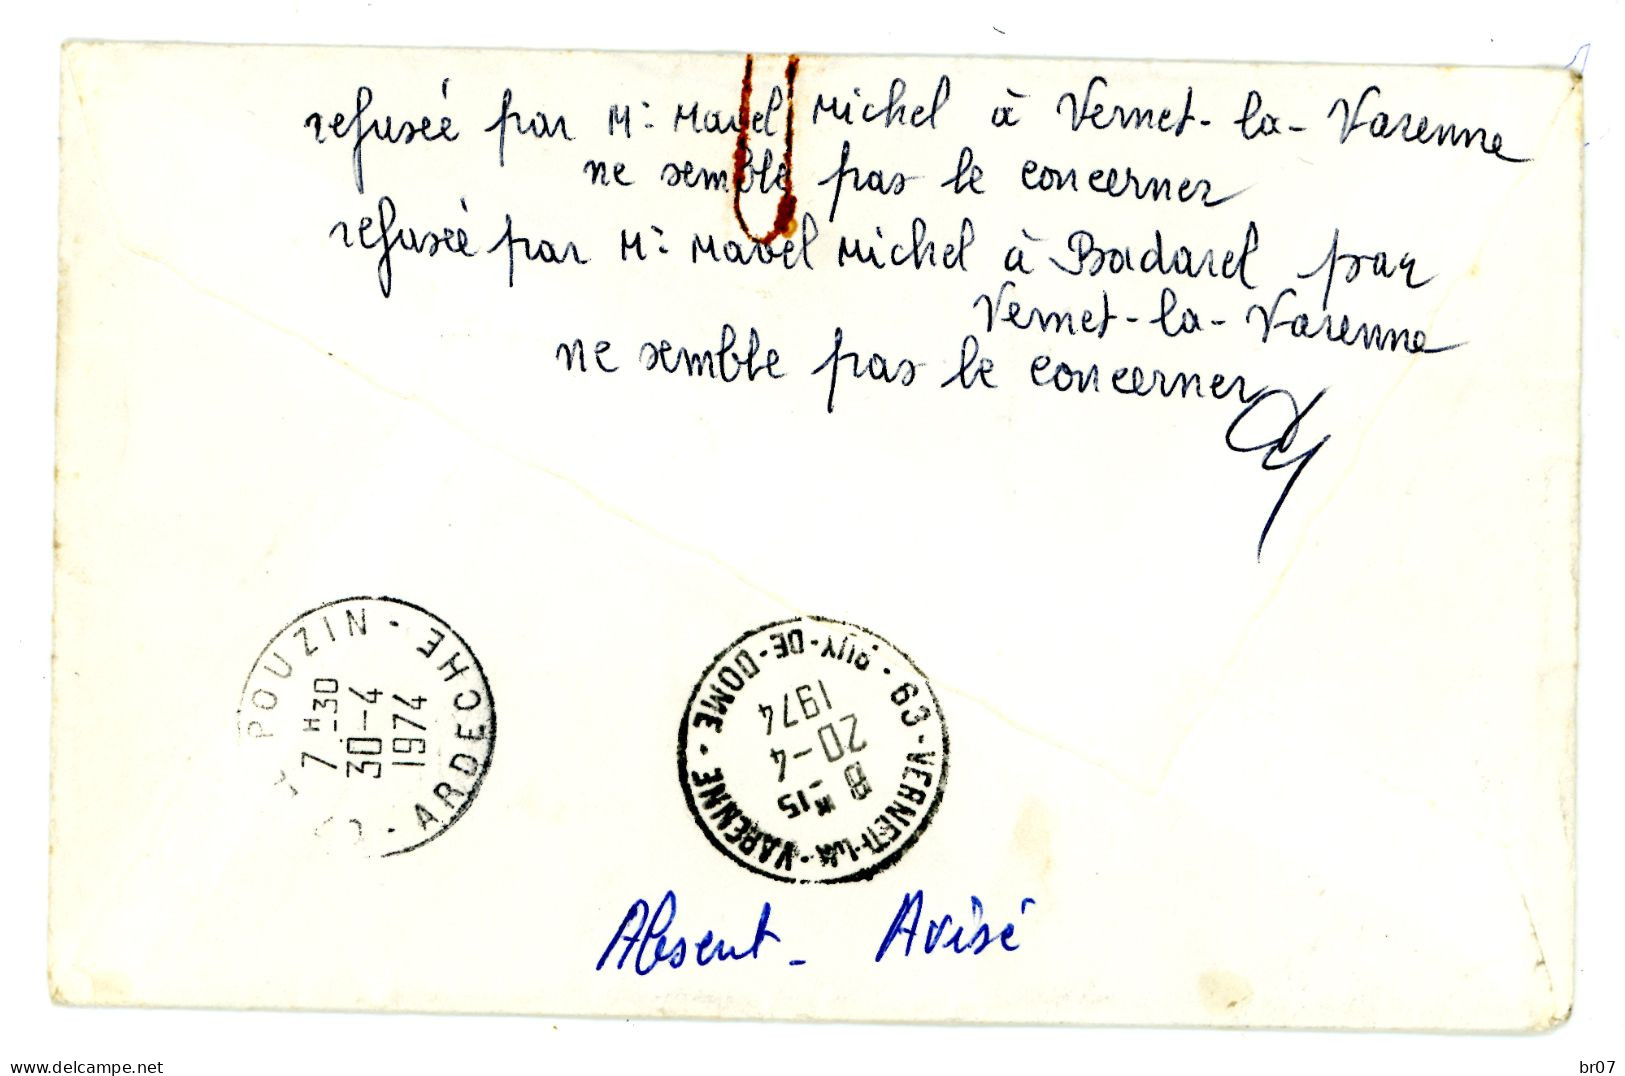 refusée par Mr Mavel Michel à Vernet-la-Varenne
ne semble pas le concerner
refusée par Mr Mavel Michel à Badarel par
Vernet-la-Varenne
ne semble pas le concerner
POUZIN - ARDECHE
7 H -30
30-4
1974
63 - VERNET-LA-VARENNE - PUY-DE-DOME -
8 H -15
20-4
1974
Absent - Avisé
www.delcampe.net
br07